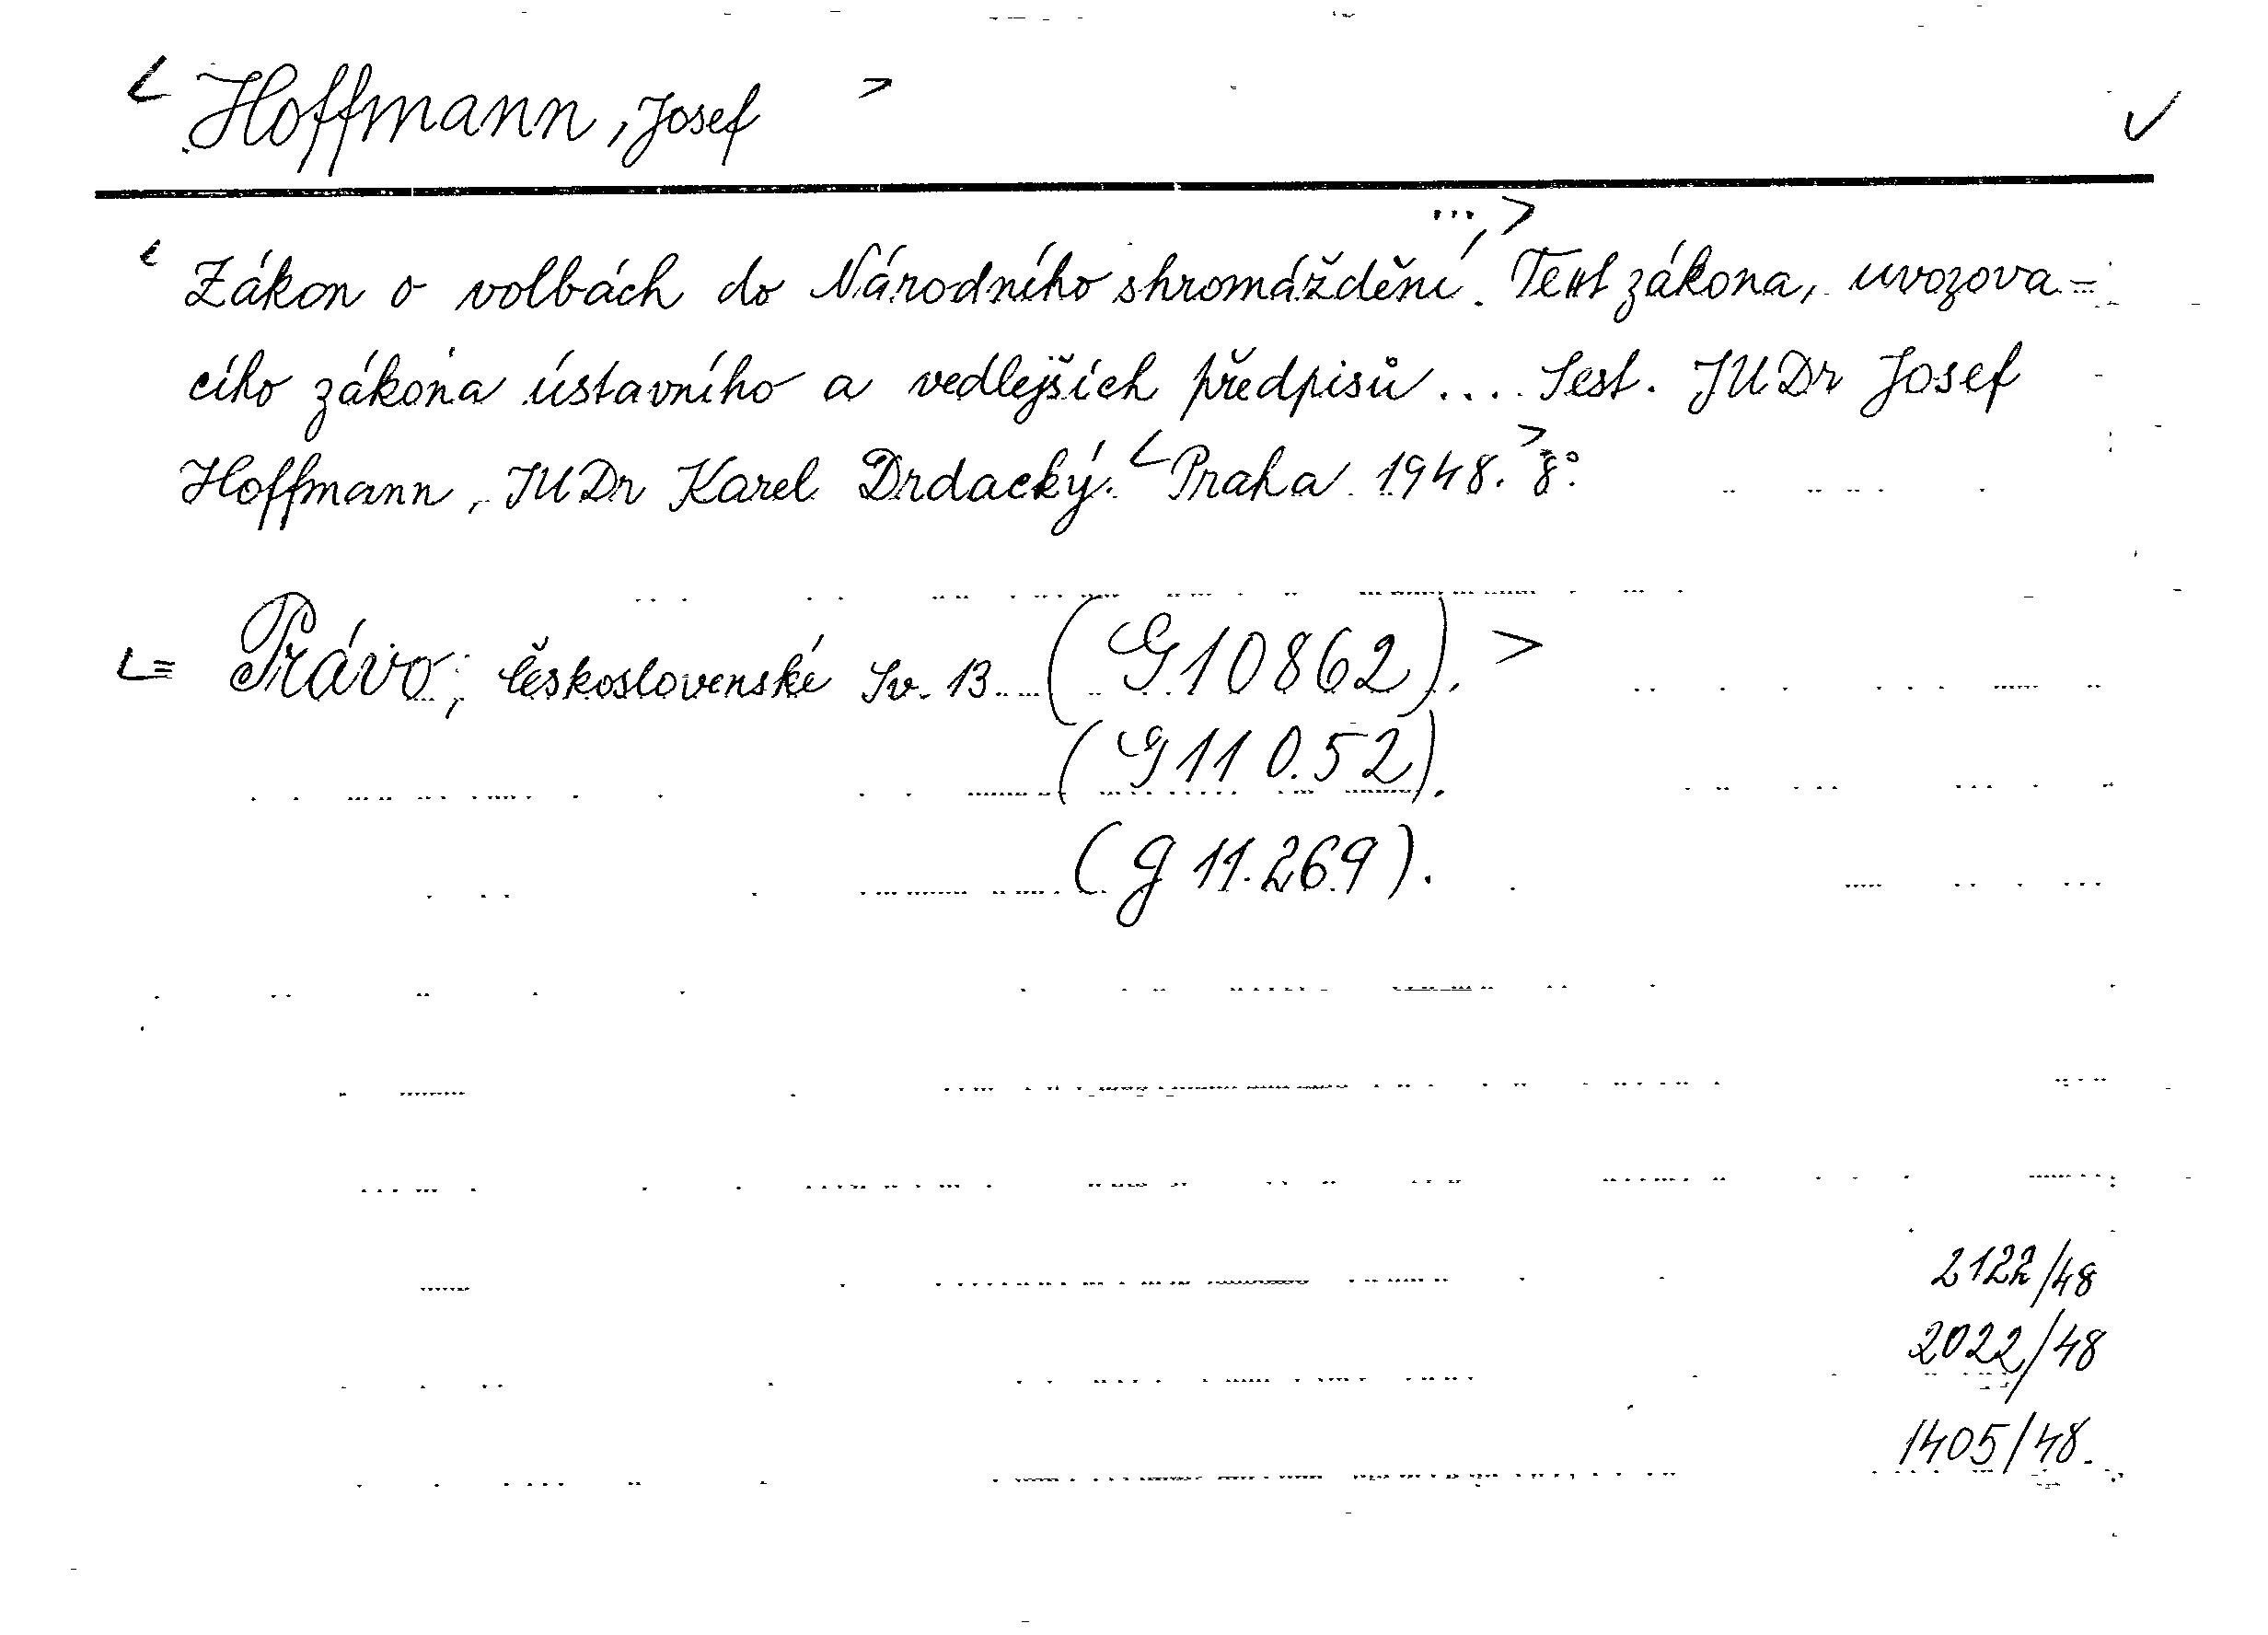 < Hoffmann, Josef > ✓
...,>
< Zákon o volbách do Národního shromáždění. Text zákona, uvozova=
cího zákona ústavního a vedlejších předpisů.... Sest. JUDr Josef
Hoffmann, JUDr Karel Drdacký. < Praha 1948. > 8°.
<= Právo, československé Sv. 13. (G 10862). >
(G 11 0.52).
(g 11.269).
2122/48
2022/48
1405/48.